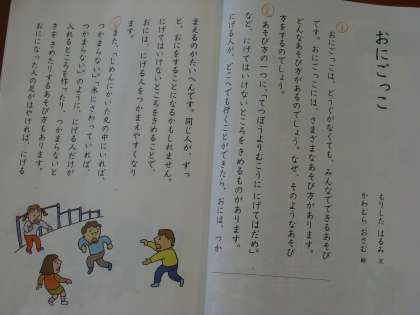 おにごっこ
もりした はるみ 文
かわむら おさむ 絵
おにごっこは、どうぐがなくても、みんなでできるあそび
です。おにごっこには、さまざまなあそび方があります。
どんなあそび方があるのでしょう。なぜ、そのようなあそび
方をするのでしょう。
あそび方の一つに、「てつぼうよりむこうに にげてはだめ。」
など、にげてはいけないところをきめるものがあります。
にげる人が、どこへでも行くことができたら、おには、つか
まえるのがたいへんです。同じ人が、ずっ
と、おにをすることになるかもしれません。
にげてはいけないところをきめることで、
おには、にげる人をつかまえやすくなり
ます。
また、「じめんにかいた丸の中にいれば、
つかまらない。」「木にさわっていれば、
つかまらない。」のように、にげる人だけが
入れるところを作ったり、つかまらないと
きをきめたりするあそび方もあります。
おにになった人の足がはやければ、にげる